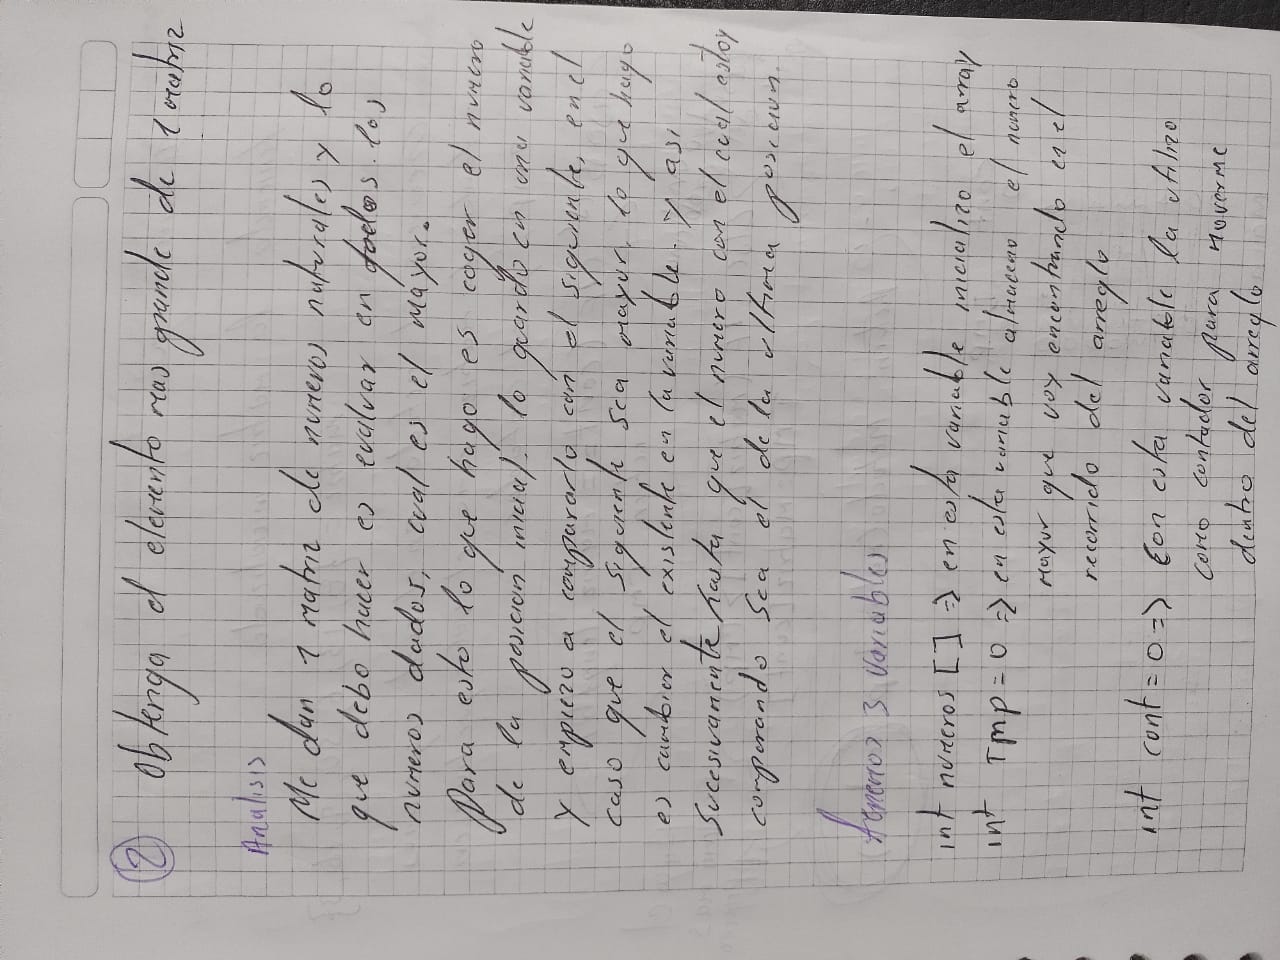 ② Obtenga el elemento mas grande de 1 matriz
Analisis
Me dan 1 matriz de numeros naturales y lo
que debo hacer es evaluar en todos los
numeros dados, cual es el mayor.
Para esto lo que hago es coger el numero
de la posicion inicial. lo guardo en una variable
y empiezo a compararlo con el siguiente, en el
caso que el siguiente sea mayor, lo que hago
es cambiar el existente en la variable. y asi
sucesivamente hasta que el numero con el cual estoy
comparando sea el de la ultima posicion.
tenemos 3 variables
int numeros [] => en esta variable inicializo el array
int Tmp = 0 => en esta variable almaceno el numero
mayor que voy encontrando en el
recorrido del arreglo
int cont = 0 => Con esta variable la utilizo
como contador para moverme
dentro del arreglo